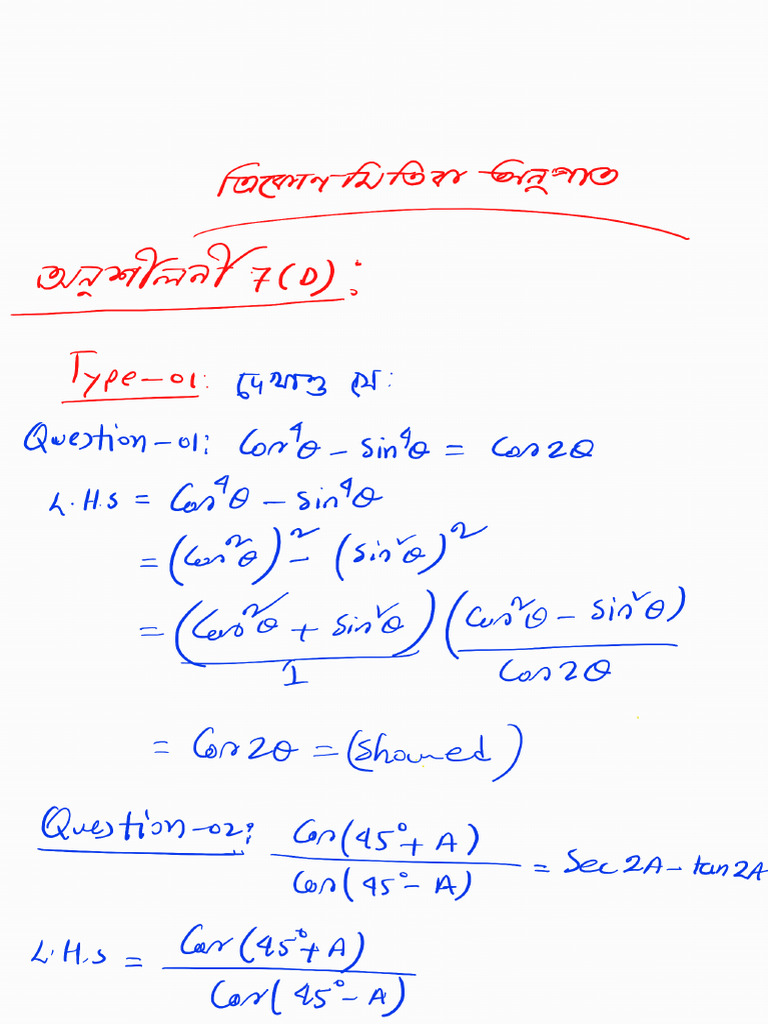 ত্রিকোনমিতিক অনুপাত
অনুশীলনী 7(D):
Type-01: দেখাও যে:
Question-01: Cos⁴θ - sin⁴θ = Cos2θ
L.H.S = Cos⁴θ - sin⁴θ
= (Cos²θ)² - (sin²θ)²
= (Cos²θ + sin²θ) (Cos²θ - sin²θ)
1 Cos2θ
= Cos2θ = (Showed)
Question-02: Cos(45°+A)
Cos(45°-A) = Sec2A - tan2A
L.H.S = Cos(45°+A)
Cos(45°-A)